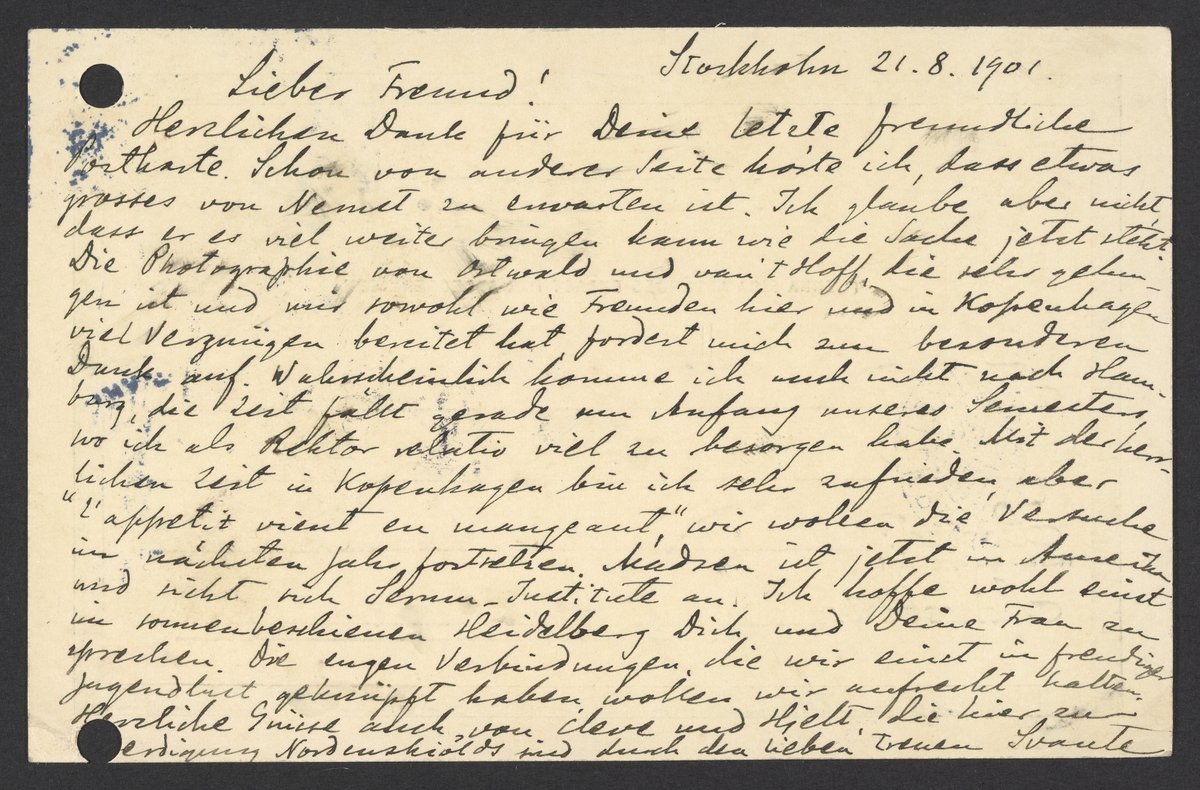 Stockholm 21.8.1901.
Lieber Freund!
Herzlichen Dank für Deine letzte freundliche
Postkarte. Schon von anderer Seite hörte ich, dass etwas
grosses von Nernst zu erwarten ist. Ich glaube aber nicht,
dass er es viel weiter bringen kann wie die Sache jetzt steht.
Die Photographie von Ostwald und van't Hoff, die sehr gelun-
gen ist und mir sowohl wie Freunden hier und in Kopenhagen
viel Vergnügen bereitet hat fordert mich zum besonderen
Dank auf. Wahrscheinlich komme ich auch nicht nach Ham-
burg, die Zeit fällt gerade am Anfang unseres Semesters,
wo ich als Rektor relativ viel zu besorgen habe. Mit der herr-
lichen Zeit in Kopenhagen bin ich sehr zufrieden, aber
"l'appetit vient en mangeant", wir wollen die Versuche
im nächsten Jahr fortsetzen. Madsen ist jetzt in Amerika
und sieht sich Serum-Institute an. Ich hoffe wohl einst
im sonnenbeschienen Heidelberg Dich und Deine Frau zu
sprechen. Die engen Verbindungen, die wir einst in freudiger
Jugendlust geknüpft haben, wollen wir aufrecht halten.
Herzliche Grüsse auch von Cleve und Hjelt, die hier zu
erdigung Nordenskiölds sind durch den lieben treuen Svante